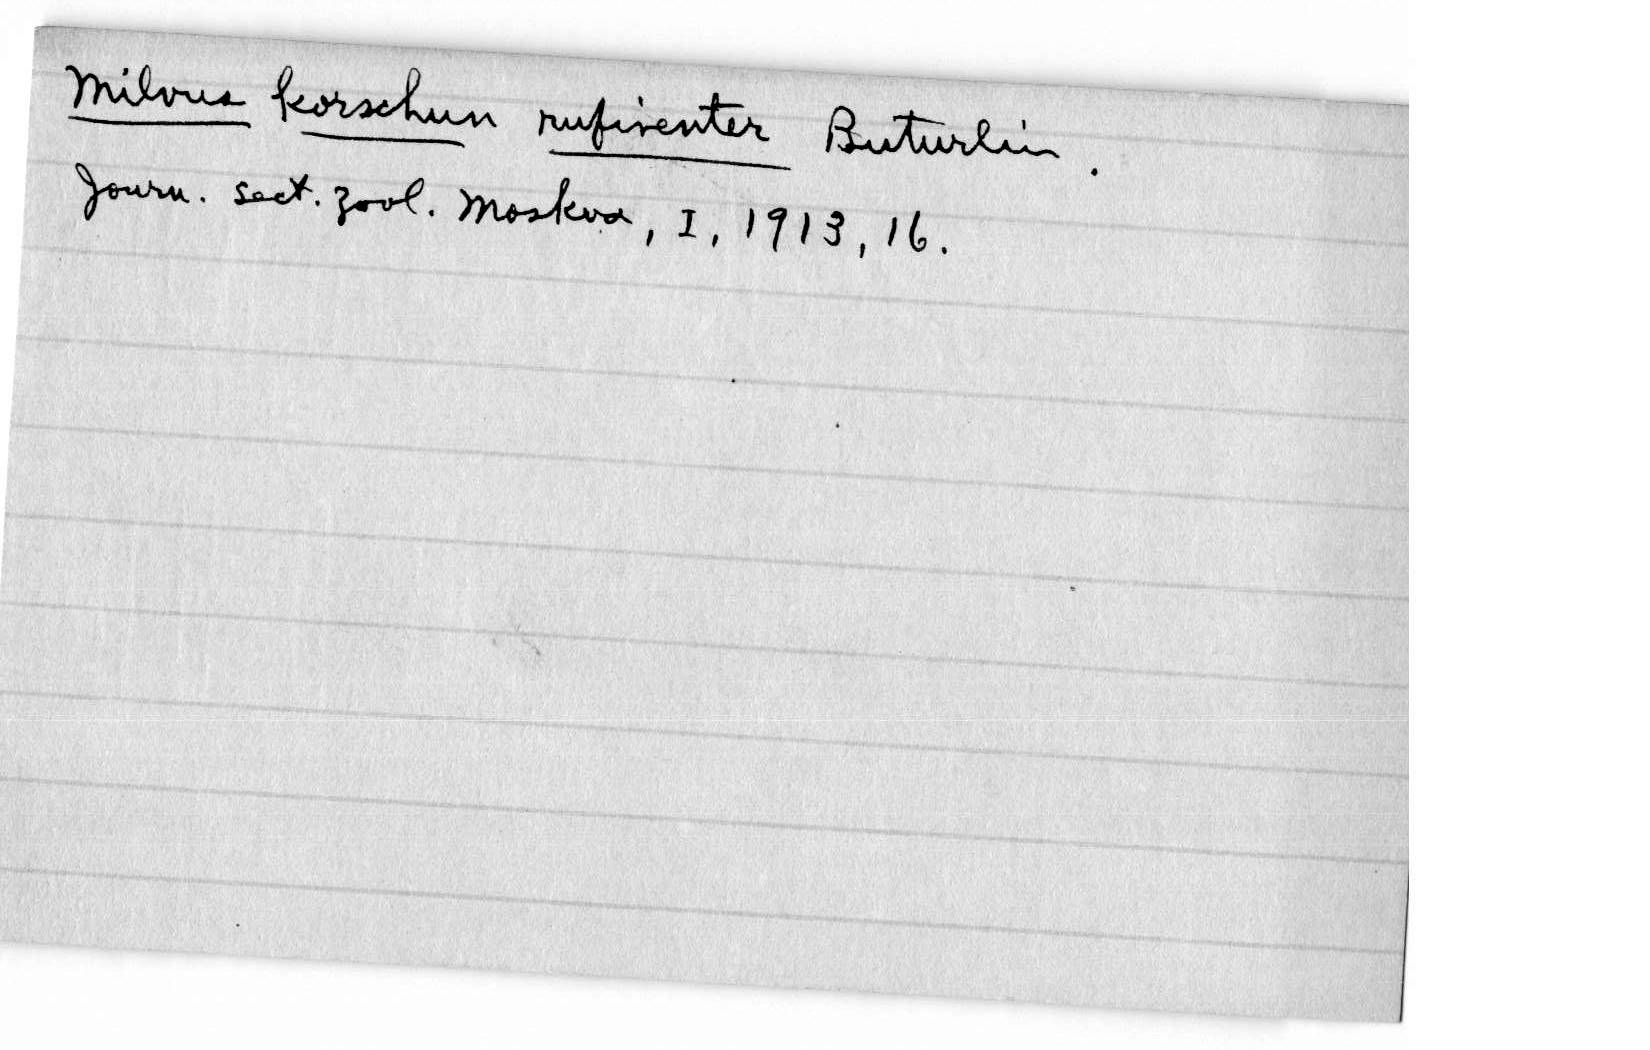 Milvus korschun rufiventer Buturlin.
Journ. sect. zool. Moskva, I, 1913, 16.